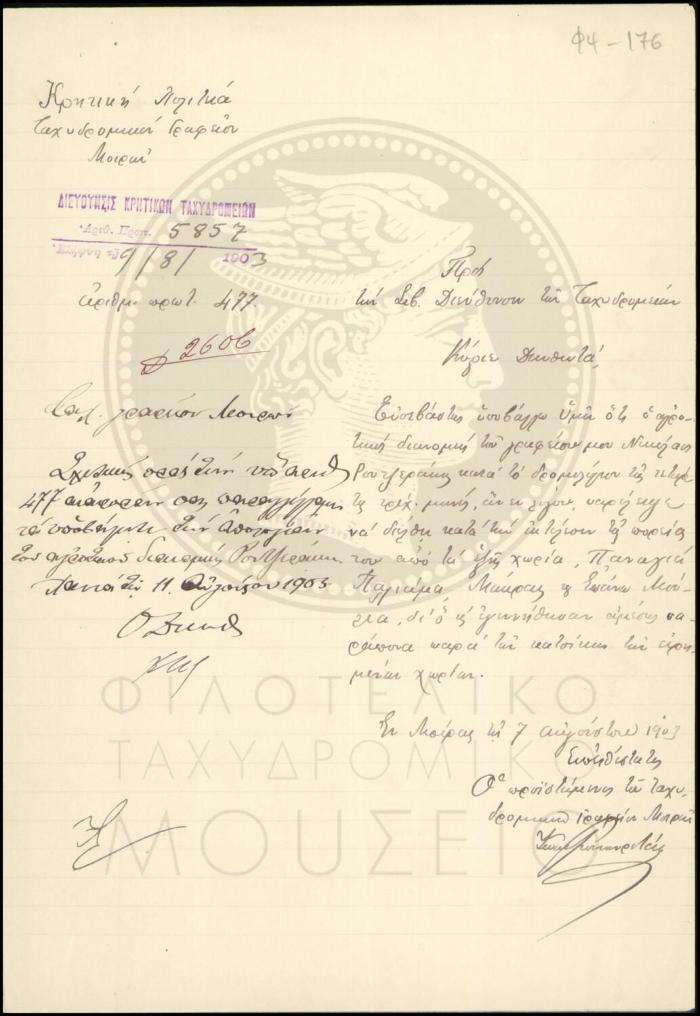 Φ4-176
Κρητική Πολιτεία
Ταχυδρομικόν Γραφείον
Μοιρών
ΔΙΕΥΘΥΝΣΙΣ ΚΡΗΤΙΚΩΝ ΤΑΧΥΔΡΟΜΕΙΩΝ
Ἀριθ. Πρωτ. 5857
Ἐλήφθη τῇ 9/8/1903
ἀριθμ. πρωτ. 477
2606
Πρὸς
τὴν Σεβ. Διεύθυνσιν τῶν Ταχυδρομείων
Κύριε Διευθυντά,
Εὐσεβάστως ὑποβάλλω ὑμῖν ὅτι ὁ ἀγρο-
τικὸς διανομεὺς τοῦ γραφείου μου Νικόλαος
κατὰ τὸ δρομολόγιον τῆς
τρέχ. μηνός,
νὰ διέλθῃ κατὰ τὴν ἐκτέλεσιν τῆς πορείας
του ἀπὸ τὰ ἑξῆς χωρία, Παναγιά
Παλιάμα, Μάκρες κ Ἐπάνω Μού-
λια, δι' ὃ κ ἐγεννήθησαν ἀμέσως πα-
ράπονα παρὰ τῶν κατοίκων τῶν εἰρη-
μένων χωρίων.
Ἐν Μοίραις τῇ 7 αὐγούστου 1903
Εὐπειθέστατος
Ὁ προϊστάμενος τοῦ ταχυ-
δρομικοῦ γραφείου Μοιρῶν
γραφεῖον Μοιρῶν
Σχετικῶς πρὸς τὴν ὑπ' ἀριθ.
477 ἀναφοράν σας παραγγέλλομεν
νὰ ὑποβάλητε τὴν ἀπολογίαν
τοῦ ἀγροτικοῦ διανομέως
Χανιὰ τῇ 11 Αὐγούστου 1903
Ὁ Διευθ
ΦΙΛΟΤΕΛΙΚΟ
ΤΑΧΥΔΡΟΜΙΚΟ
ΜΟΥΣΕΙΟ